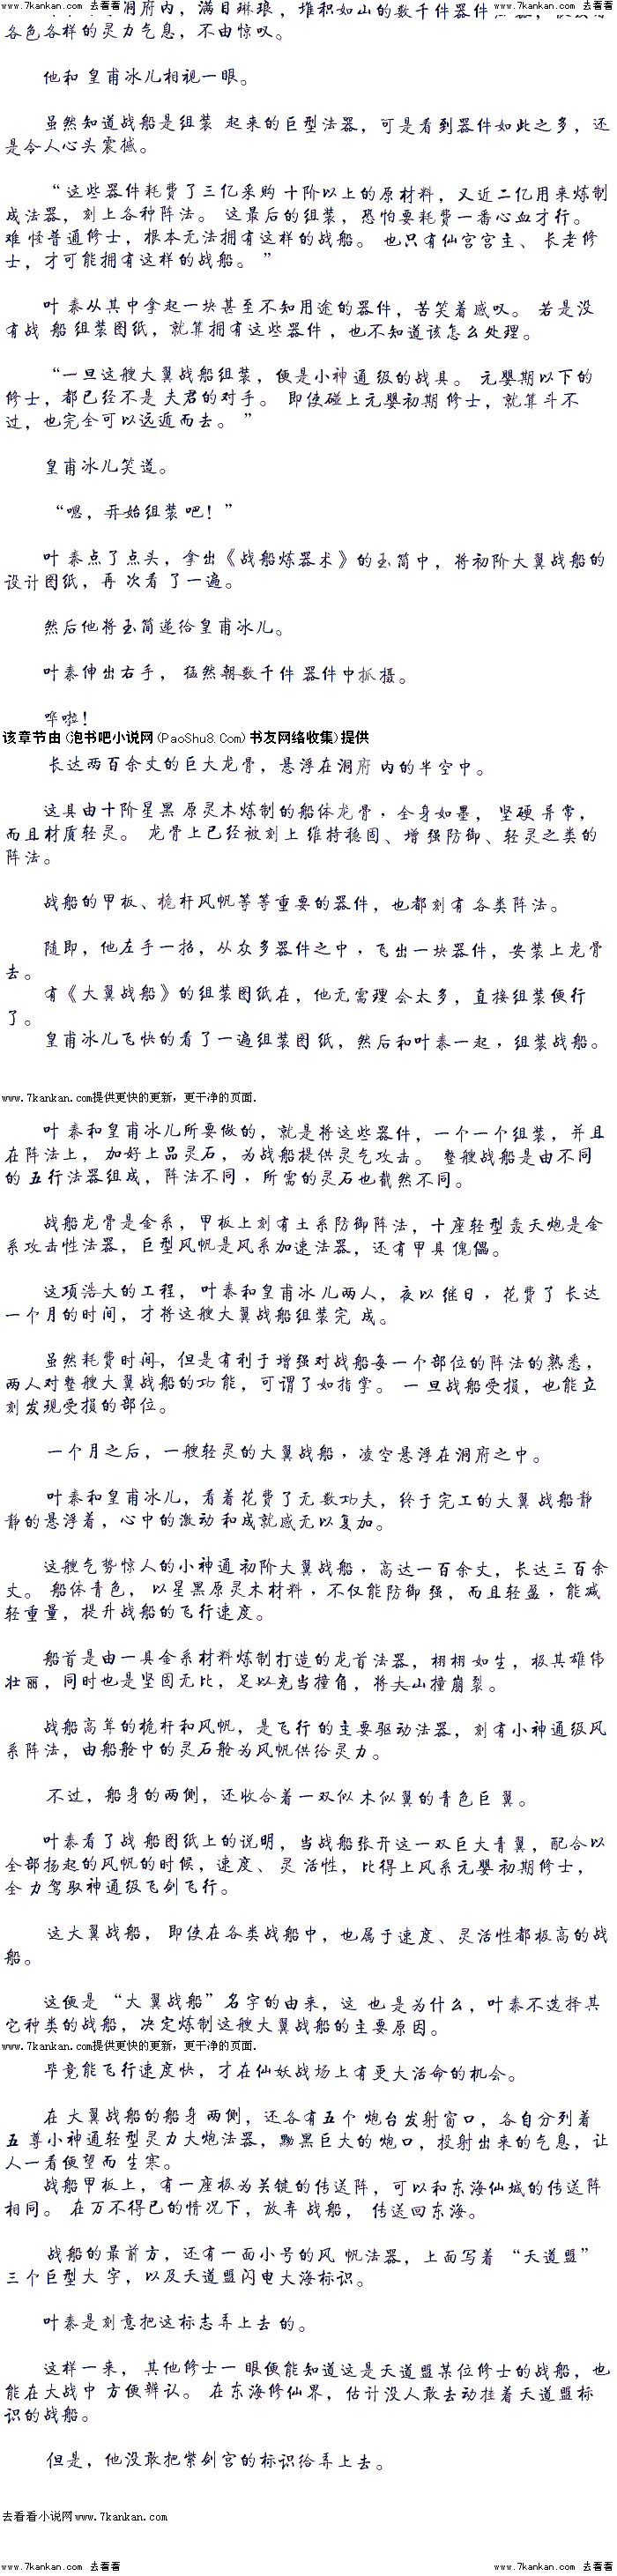 www.7kankan.com 去看看 www.7kankan.com 去看看
洞府内，满目琳琅，堆积如山的数千件器件
各色各样的灵力气息，不由惊叹。
他和 皇甫冰儿相视一眼。
虽然知道战船是组装 起来的巨型法器，可是看到器件如此之多，还
是令人心头震撼。
“ 这些器件耗费了三亿采购 十阶以上的原材料，又近二亿用来炼制
成法器，刻上各种阵法。 这最后的组装，恐怕要耗费一番心血才行。
难 怪普通修士，根本无法拥有这样的战船。 也只有仙宫宫主、长老修
士，才可能拥有这样的战船。 ”
叶 秦从其中拿起一块甚至不知用途的器件，苦笑着感叹。 若是没
有战 船 组装图纸，就算拥有这些器件 ，也不知道该怎么处理。
“一旦这艘大翼战船组装，便是小神 通 级的战具。 元婴期以下的
修士，都已经不是 夫君的对手。 即使碰上元婴初期 修士，就算斗不
过，也完全可以远遁而去。 ”
皇甫冰儿笑道。
“嗯，开始组装 吧！”
叶 秦点了点头，拿出《战船炼器术》的玉简中，将初阶大翼战船的
设计图纸，再 次看 了一遍。
然后他将玉简递给皇甫冰儿。
叶秦伸出右手， 猛然朝数千件 器件中抓摄。
哗啦！
该章节由 (泡书吧小说网 (PaoShu8.Com) 书友网络收集) 提供
长达两百余丈的巨大龙骨，悬浮在洞府 内的半空中。
这具由十阶星黑 原灵木炼制的船体龙骨，全身如墨， 坚硬 异常，
而且材质轻灵。 龙骨上已经被刻上 维持稳固、增 强防御、轻灵之类的
阵法。
战船的甲板、桅杆风帆等等重要的器件，也都刻有 各类阵法。
随即，他左手一招，从众多器件之中，飞出一块器件，安装上龙骨
去。
有《大翼战船》的组装图纸在，他无需理 会太多，直接组装便行
了。
皇甫冰儿飞快的看了一遍组装图 纸，然后和叶秦一起，组装战船。
www.7kankan.com提供更快的更新，更干净的页面.
叶 秦和皇甫冰儿所要做的，就是将这些器件，一个一个组装，并且
在阵法上， 加好上品灵石，为战船提供灵气攻击。 整艘战船是由不同
的 五行法器组成，阵法不同，所需的灵石也截然不同。
战船龙骨是金系，甲板上刻有土系防御阵法，十座轻型轰天炮是金
系攻击性法器，巨型风帆是风系加速法器，还有甲具 傀儡。
这项浩大的工程， 叶秦和皇甫冰 儿两人，夜以 继日，花费了 长达
一个月的时间，才将这艘大翼战船组装完 成。
虽然耗费时间，但是有利于增强对战船每一个部位的阵法的熟悉，
两人对整艘大翼战船的功 能，可谓了如指掌。 一 旦战船受损，也能立
刻发现受损的部位。
一个月之后，一艘轻灵的大翼战船，凌空悬浮在洞府之中。
叶秦和皇甫冰儿，看着花费了无 数功夫，终于完工的大翼 战船静
静的悬浮着，心中的激动 和成就感无以复加。
这艘气势惊人的小神通 初阶大翼战船，高达一百余丈，长达三百余
丈。 船体青色， 以星黑原灵木材料，不仅能防御强，而且轻盈，能减
轻重量，提升战船的飞行速度。
船首是由一具金系材料炼制打造的龙首法器，栩栩 如生，极其雄伟
壮丽，同时也是坚固无比，足以充当撞角，将大山撞崩 裂。
战船高耸的桅杆和风帆，是飞行 的主要驱动法器，刻有小神通级风
系阵法，由船舱中的灵石舱为风帆供给灵力。
不过，船身的两侧，还收合着一双似 木似翼的青色巨 翼。
叶秦看了战 船图纸上的说明，当战船张开这一双巨大青翼，配合以
全部扬起的风帆的时候，速度、灵 活性，比得上风系元婴初期修士，
全 力 驾驭神通级飞剑飞行。
这大翼战船， 即使在各类战船中，也属于速度、灵活性都极高的战
船。
这便是 “大 翼战船”名字的由来，这 也 是为什么，叶秦不选择其
它种类的战船，决定炼制这艘大翼战船的主要原因。
www.7kankan.com提供更快的更新，更干净的页面.
毕竟能飞行速度快，才在仙妖战场上有更大活命的机会。
在 大翼战船的船身 两侧，还各有五个 炮台发射窗口，各自分列着
五 尊小神通轻型灵力大炮法器，黝黑巨大的 炮口，投射出来的气息，让
人一看便望而 生寒。
战船甲板上，有一座极为关键的传送阵，可以和东海仙城的传送阵
相同。 在万不得已的情况下，放弃 战船， 传送回东海。
战船的最前方，还有一面小号的风 帆法器，上面写着 “天道盟”
三个巨型大 字，以及天道盟闪电大海标识。
叶秦是刻意把这标志弄上去 的。
这样一来， 其他修士一 眼便能知道这是天道盟某位修士的战船，也
能在大战中 方便辨认。 在东海修仙界，估计没人敢去动挂着天道盟标
识的战船。
但是，他没敢把紫剑宫的标识给弄上去。
去看看小说网 www.7kankan.com
www.7kankan.com 去看看 www.7kankan.com 去看看